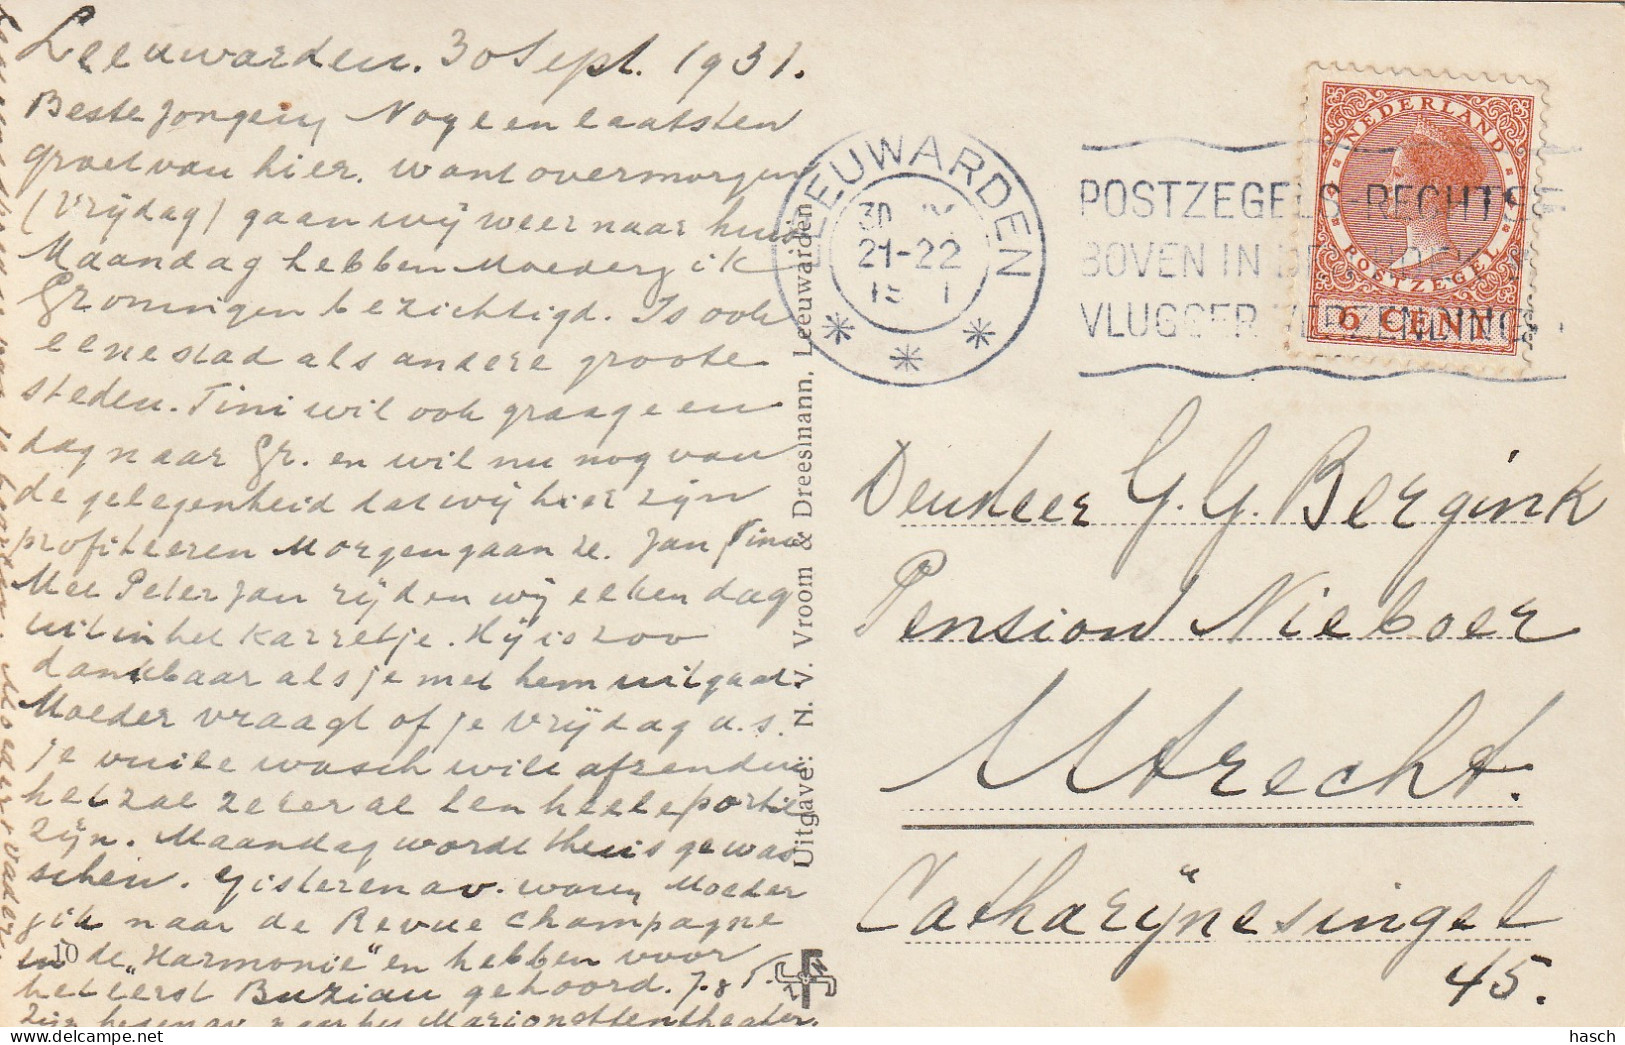 Leeuwarden. 30 Sept. 1931.
Beste Jongen, Nog een laatsten
groet van hier. want overmorgen
(Vrijdag) gaan wij weer naar huis
Maandag hebben Moeder & ik
Groningen bezichtigd. Is ook
eene stad als andere groote
steden. Tini wil ook graag een
dag naar Gr. en wil nu nog van
de gelegenheid dat wij hier zijn
profiteeren Morgen gaan ze. Jan & Tini
Met Peter Jan rijden wij elken dag
uit in het karretje. Hij is zoo
dankbaar als je met hem uitgaat.
Moeder vraagt of je Vrijdag a.s.
je vuile wasch wilt afzenden
het zal zeker al een heele portie
zijn. Maandag wordt thuis gewas
schen. Gisteren av. waren Moeder
& ik naar de Revue Champagne
in de „Harmonie" en hebben voor
het eerst Buziau gehoord.
Zijn heden av. naar het Marionettentheater.
Moeder & Vader
10
Uitgave: N. V. Vroom & Dreesmann, Leeuwarden
LEEUWARDEN
30 IX
21-22
POSTZEGELS RECHTS
BOVEN IN DE
VLUGGER VERZENDING
NEDERLAND
POSTZEGEL
6 CENT
Den Heer G. G. Bergink
Pension Nieboer
Utrecht.
Catharijnesingel
45.
hasch